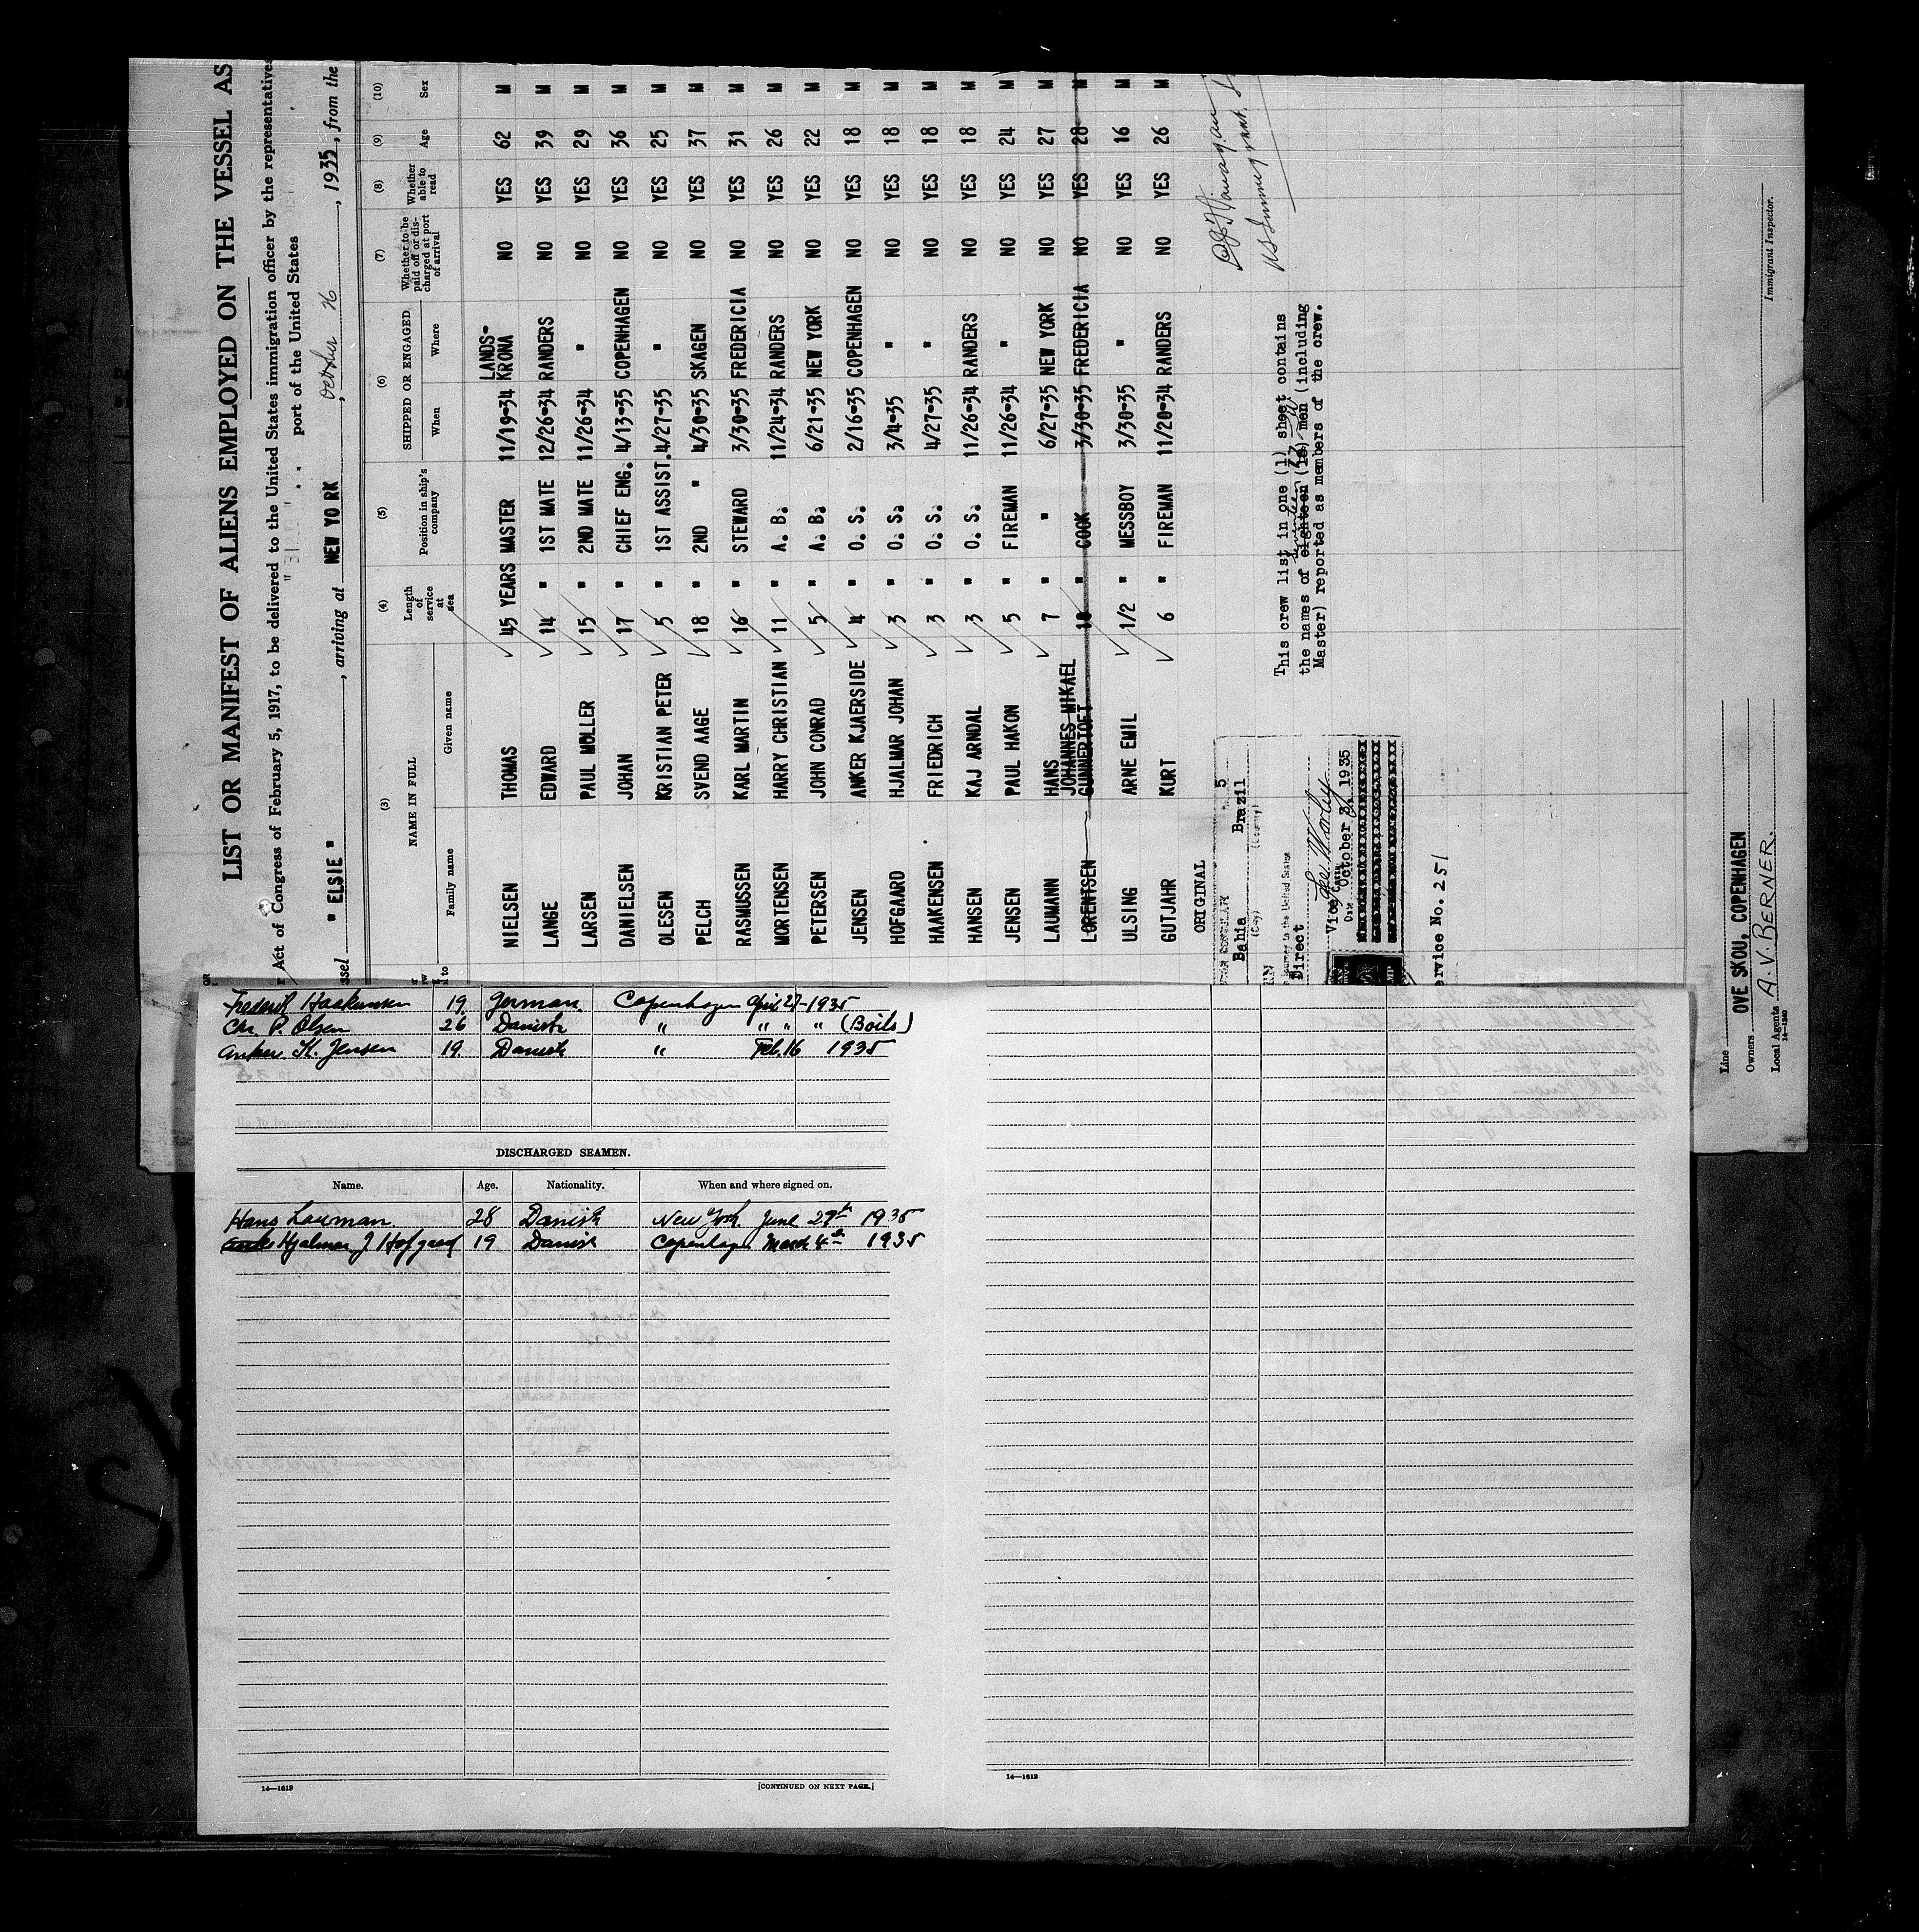 LIST OR MANIFEST OF ALIENS EMPLOYED ON THE VESSEL AS
Act of Congress of February 5, 1917, to be delivered to the United States immigration officer by the representatives
port of the United States
ssel " ELSIE ", arriving at NEW YORK, October 26, 1935, from the
(3) (4) (5) (6) (7) (8) (9) (10)
NAME IN FULL Length of service at sea Position in ship's company SHIPPED OR ENGAGED Whether to be paid off or discharged at port of arrival Whether able to read Age Sex
Family name Given name When Where
NIELSEN THOMAS 45 YEARS MASTER 11/19-34 LANDS-KRONA NO YES 62 M
LANGE EDWARD 14 " 1ST MATE 12/26-34 RANDERS NO YES 39 M
LARSEN PAUL MÖLLER 15 " 2ND MATE 11/26-34 " NO YES 29 M
DANIELSEN JOHAN 17 " CHIEF ENG. 4/13-35 COPENHAGEN NO YES 36 M
OLESEN KRISTIAN PETER 5 " 1ST ASSIST. 4/27-35 " NO YES 25 M
PELCH SVEND AAGE 18 " 2ND " 4/30-35 SKAGEN NO YES 37 M
RASMUSSEN KARL MARTIN 16 " STEWARD 3/30-35 FREDERICIA NO YES 31 M
MORTENSEN HARRY CHRISTIAN 11 " A. B. 11/24-34 RANDERS NO YES 26 M
PETERSEN JOHN CONRAD 5 " A. B. 6/21-35 NEW YORK NO YES 22 M
JENSEN ANKER KJAERSIDE 4 " O. S. 2/16-35 COPENHAGEN NO YES 18 M
HOFGAARD HJALMAR JOHAN 3 " O. S. 3/4-35 " NO YES 18 M
HAAKENSEN FRIEDRICH 3 " O. S. 4/27-35 " NO YES 18 M
HANSEN KAJ ARNDAL 3 " O. S. 11/26-34 RANDERS NO YES 18 M
JENSEN PAUL HAKON 5 " FIREMAN 11/26-34 " NO YES 24 M
LAUMANN HANS 7 " " 6/27-35 NEW YORK NO YES 27 M
LORENTSEN JOHANNES MIKAEL GUNNERTOFT 10 " COOK 3/30-35 FREDERICIA NO YES 28 M
ULSING ARNE EMIL 1/2 " MESSBOY 3/30-35 " NO YES 16 M
GUTJAHR KURT 6 " FIREMAN 11/20-34 RANDERS NO YES 26 M
ORIGINAL
Bahia Brazil
(City) (Country)
Direct
Vice
Date October 1935
ervice No. 251
This crew list in one (1) sheet contains
the names of eighteen seventeen (18) 17 men (including
Master) reported as members of the crew.
Immigrant Inspector.
Line
Owners OVE SKOU, COPENHAGEN
Local Agents A. V. BERNER.
14—1240
Frederik Haakensen 19 German Copenhagen April 27-1935
Chr. P. Olsen 26 Danish " " " " (Boils)
Anker K. Jensen 19 Danish " Feb. 16 1935
DISCHARGED SEAMEN.
Name. Age. Nationality. When and where signed on.
Hans Lauman 28 Danish New York June 27th 1935
Hjalmar J Hofgaard 19 Danish Copenhagen March 4th 1935
14—1613 [CONTINUED ON NEXT PAGE.]
14—1613